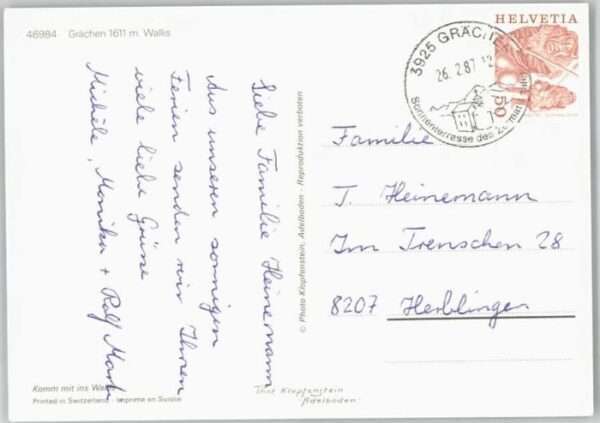 46984 Grächen 1611 m. Wallis
HELVETIA
3925 GRÄCHEN
26.2.87.12
Sonnenterrasse des Zermat
50
Liebe Familie Heinemann
Aus unseren sonnigen
Ferien senden wir Ihnen
viele liebe Grüsse
Michèle, Monika + Rolf
© Photo Klopfenstein, Adelboden - Reproduktion verboten
Familie
T. Heinemann
Im Trenschen 28
8207 Herblingen
Komm mit ins
Printed in Switzerland - Imprimé en Suisse
Klopfenstein
Adelboden